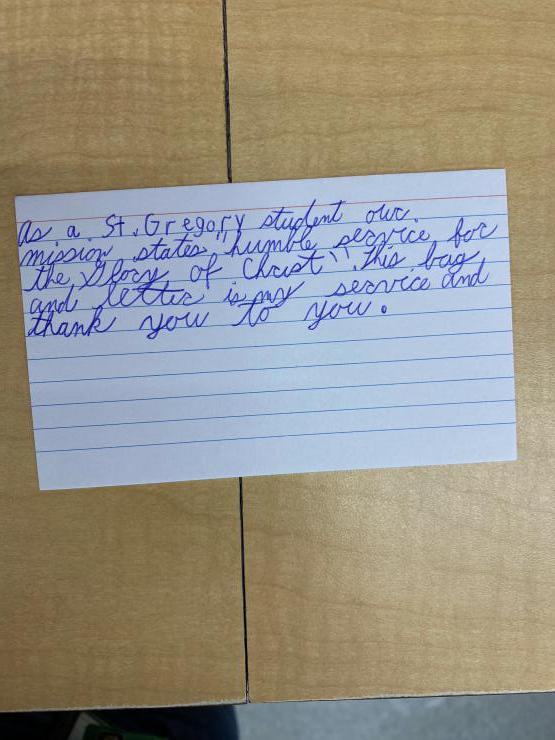 as a St. Gregory student our
mission states "humble service for
the Glory of Christ". This bag,
and letter is my service and
thank you to you.